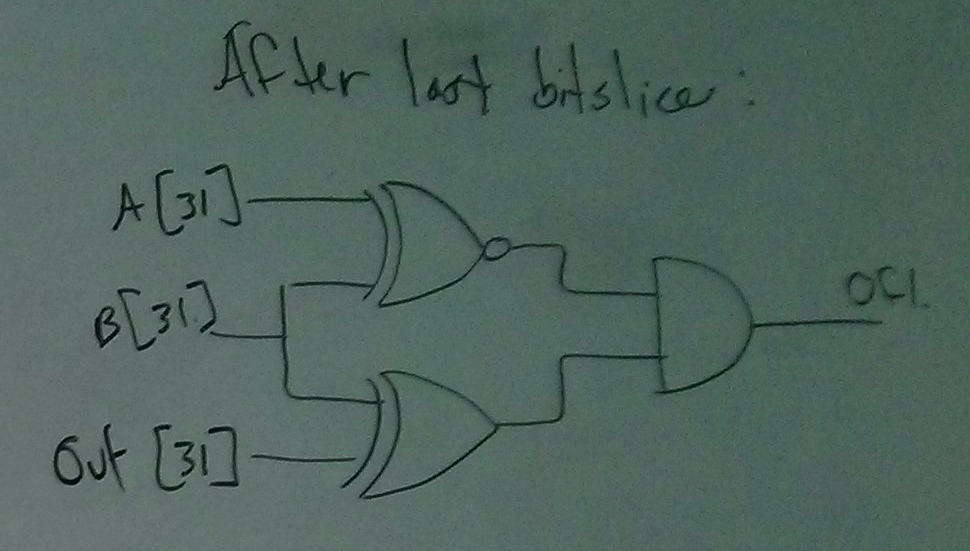 After last bitslice:
A[31]
B[31]
Out [31]